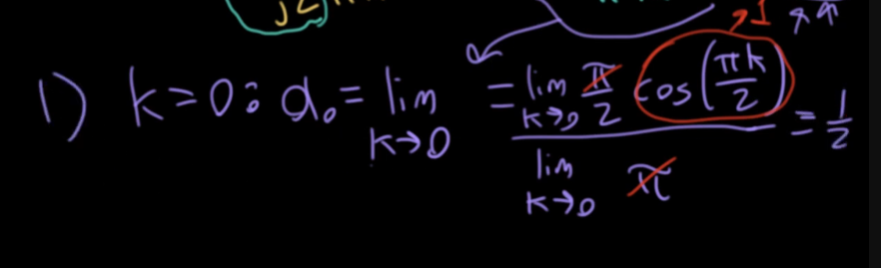 j2
1
1) k=0: d₀ = lim k→0 = (lim k→0 π/2 cos(πk/2)) / (lim k→0 π) = 1/2